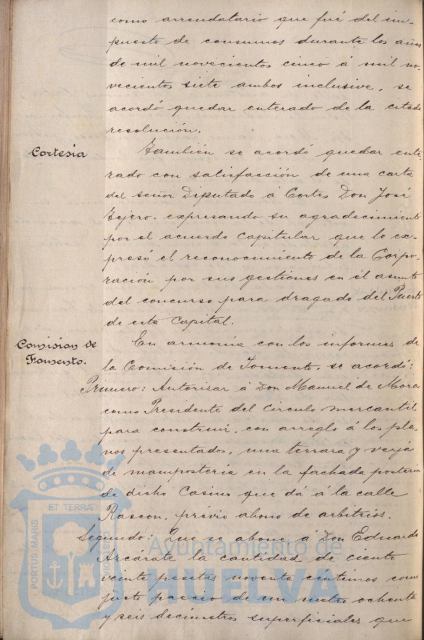 como arrendatario que fué del im-
puesto de consumos durante los años
de mil novecientos cinco á mil no-
vecientos siete ambos inclusive, se
acordó quedar enterado de la citada
resolución.
Cortesía
También se acordó quedar ente-
rado con satisfacción de una carta
del señor Diputado á Cortes Don José
Tejero, expresando su agradecimiento
por el acuerdo Capitular que le ex-
presó el reconocimiento de la Corpo-
ración por sus gestiones en el asunto
del concurso para dragado del Puerto
de esta Capital.
Comision de
Fomento.
En armonia con los informes de
la Comisión de Fomento, se acordó:
Primero: Autorizar á Don Manuel de Mora
como Presidente del Circulo mercantil
para construir, con arreglo á los pla-
nos presentados, una terraza y verja
de mampostería en la fachada posterior
de dicho Casino que dá á la calle
Rascon, prévio abono de arbitrios.
Segundo: Que se abone á Don Eduardo
la cantidad de ciento
veinte pesetas noventa centimos como
justo precio de un metro ochenta
y seis decimetros superficiales que
Ayuntamiento de
HUELVA
PORTUS MARIS
ET TERRAE